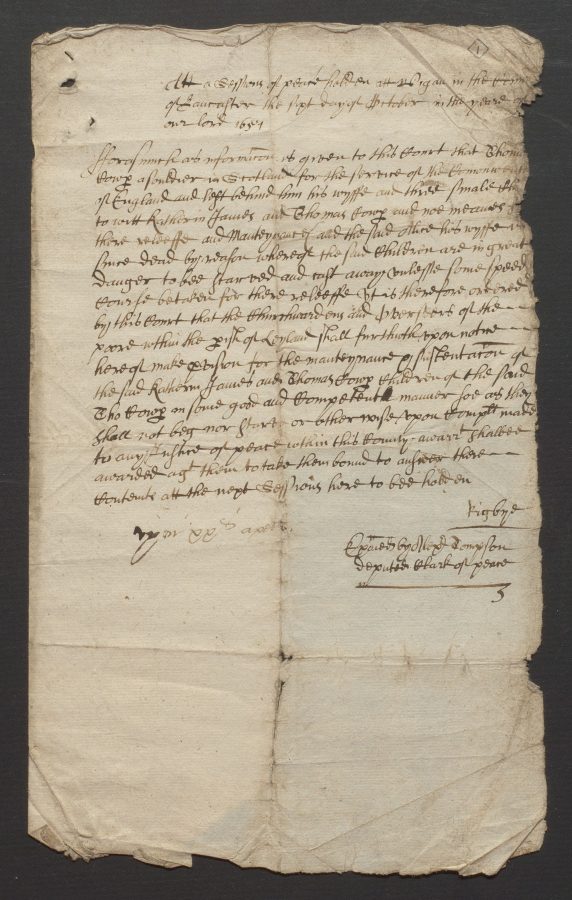 1
Att a Sessions of peace holden att Wigan in the
of Lancaster the day of October in the yeare of
our lord 1651
fforasmuch as informacon is given to this Court that Thomas
Cowp a souldier in Scotland for the service of the Comonwealth
of England and left behind him his wyffe and three smale
to witt Katherin James and Thomas Cowp and noe meanes
there releeffe and Manteynance and the said Alice his wyffe
since dead by reason whereof the said Children are in great
danger to bee starved and cast away unlesse some speedy
Course be for there releeffe It is therefore ordered
by this Court that the Churchwardens and Overseers of the
poore within the pish of Leyland shall furthwth upon notice
hereof make pvision for the manteynance & sustentacon of
the said Katherin James and Thomas Cowp Children of the said
Tho Cowp in some good and Competent manner soe as they
shall not beg nor starve or otherwise upon Complt made
to any Justice of peace within this County a warrt shalbee
awarded agt them to take them bound to answer there
Contempt att the next Sessions here to bee holden
Rigbye
by Alex Tompson
deputed Clark of peace